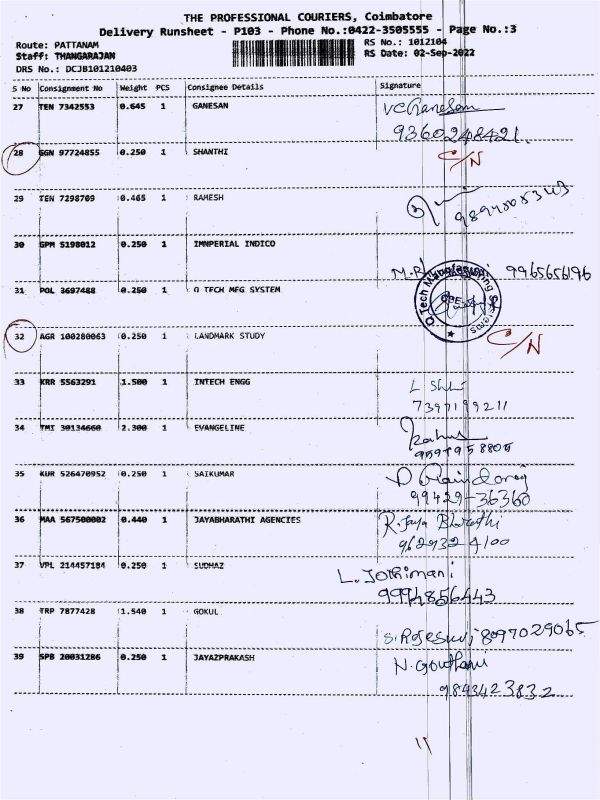 THE PROFESSIONAL COURIERS, Coimbatore
Delivery Runsheet - P103 - Phone No.:0422-3505555 - Page No.:3
Route: PATTANAM RS No.: 1012104
Staff: THANGARAJAN RS Date: 02-Sep-2022
DRS No.: DCJB101210403
S No Consignment No Weight PCS Consignee Details Signature
27 TEN 7342553 0.645 1 GANESAN VCGanesan
9360248421
28 GGN 97724855 0.250 1 SHANTHI C/N
29 TEN 7298709 0.465 1 RAMESH
30 GPM 5198012 0.250 1 IMNPERIAL INDICO
31 POL 3697488 0.250 1 Q TECH MFG SYSTEM 9965656196
32 AGR 100280063 0.250 1 LANDMARK STUDY C/N
33 KRR 5563291 1.500 1 INTECH ENGG
7397199211
34 TMI 30134660 2.300 1 EVANGELINE
9597958805
35 KUR 526470952 0.250 1 SAIKUMAR
99429-36360
36 MAA 567500002 0.440 1 JAYABHARATHI AGENCIES R.Jaya Bharathi
9629324100
37 VPL 214457184 0.250 1 SUDHAZ L. Jothimani
9994856443
38 TRP 7877428 1.540 1 GOKUL 8097029065
39 SPB 20031286 0.250 1 JAYAZPRAKASH N. Gowthami
9843423832